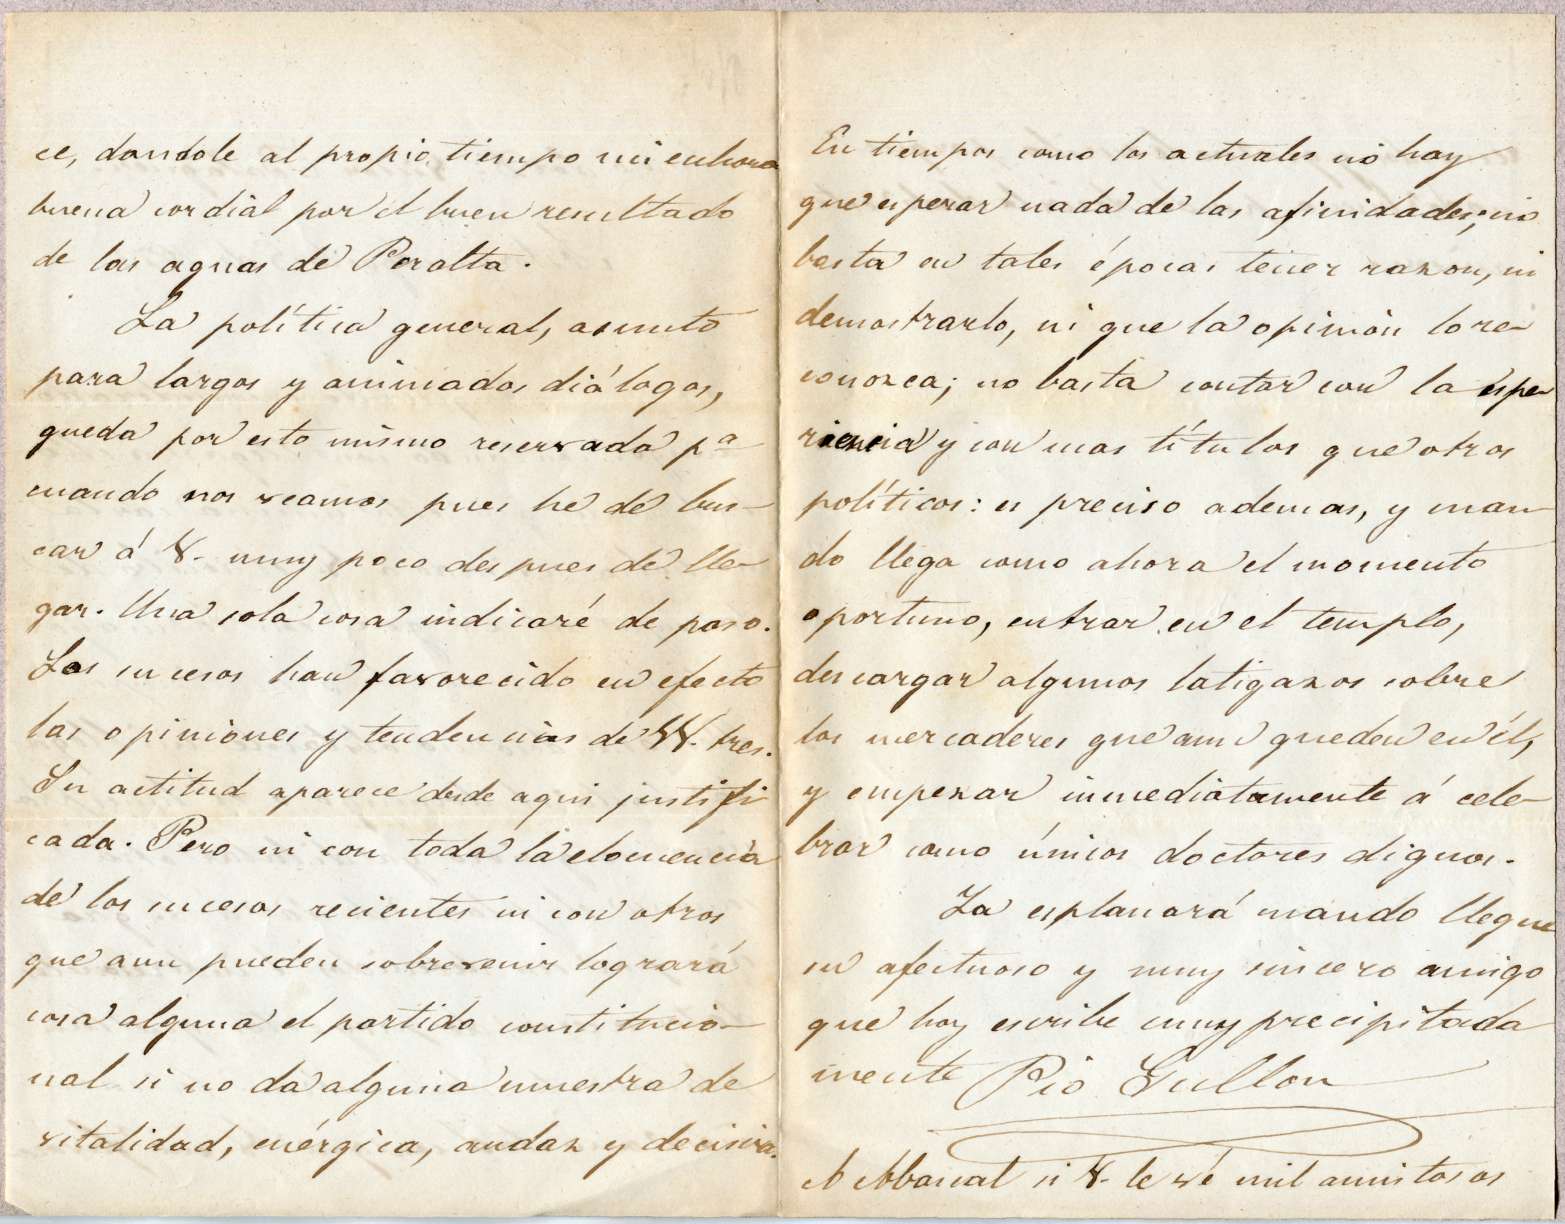 ce, dandole al propio tiempo mi enhora
buena cordial por el buen resultado
de las aguas de Peralta.
La política general, asunto
para largos y animados diálogos,
queda por esto mismo reservada pª
cuando nos veamos pues he de bus-
car á V. muy poco despues de lle-
gar. Una sola cosa indicaré de paso.
Los sucesos han favorecido en efecto
las opiniones y tendencias de VV. tres.
Su actitud aparece desde aqui justifi
cada. Pero ni con toda la elocuencia
de los sucesos recientes ni con otros
que aun pueden sobrevenir logrará
cosa alguna el partido constitucio-
nal si no da alguna muestra de
vitalidad, enérgica, audaz y decisiva.
En tiempos como los actuales no hay
que esperar nada de las afinidades; no
basta en tales épocas tener razon, ni
demostrarlo, ni que la opinión lo re-
conozca; no basta contar con la espe
riencia y con mas títulos que otros
políticos: es preciso ademas, y cuan-
do llega como ahora el momento
oportuno, entrar en el templo,
descargar algunos latigazos sobre
los mercaderes que aun queden en él,
y empezar inmediatamente á cele-
brar como únicos doctores dignos.
La esplanará cuando llegue
su afectuoso y muy sincero amigo
que hoy escribe muy precipitada
mente Pio Gullon
A Abascal si V. le vé mil amistosos